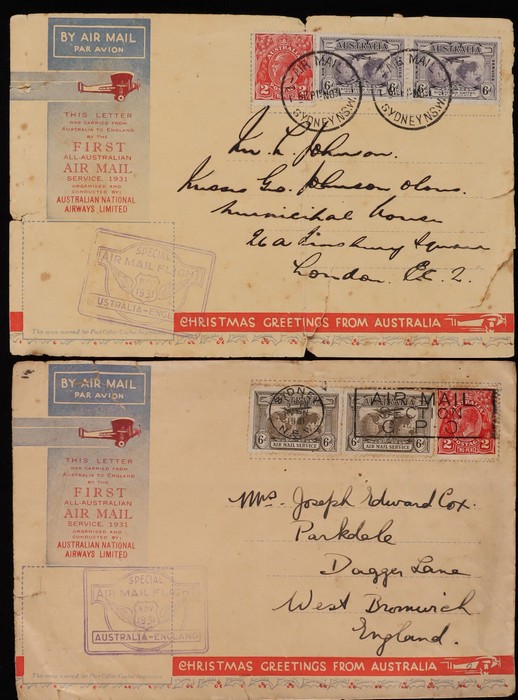 BY AIR MAIL
PAR AVION
THIS LETTER
WAS CARRIED FROM
AUSTRALIA TO ENGLAND
BY THE
FIRST
ALL-AUSTRALIAN
AIR MAIL
SERVICE, 1931
ORGANISED AND
CONDUCTED BY:
AUSTRALIAN NATIONAL
AIRWAYS LIMITED
AUSTRALIA
AUSTRALIA
2 2
6d 6d
AIR MAIL
SYDNEY N.S.W.
AIR MAIL
SYDNEY N.S.W.
Johnson.
Geo. Johnson
Municipal House
26a Finsbury Square
London. E.C. 2.
SPECIAL
AIR MAIL FLIGHT
NOV
1931
AUSTRALIA-ENGLAND
CHRISTMAS GREETINGS FROM AUSTRALIA
BY AIR MAIL
PAR AVION
THIS LETTER
WAS CARRIED FROM
AUSTRALIA TO ENGLAND
BY THE
FIRST
ALL-AUSTRALIAN
AIR MAIL
SERVICE, 1931
ORGANISED AND
CONDUCTED BY:
AUSTRALIAN NATIONAL
AIRWAYS LIMITED
SYDNEY
AIR MAIL
SECTION
G.P.O.
6d 6d 6d 6d
AIR MAIL SERVICE
AIR MAIL SERVICE
2 2
Mrs. Joseph Edward Cox.
Parkdale
Dagger Lane
West Bromwich
England.
SPECIAL
AIR MAIL FLIGHT
NOV
1931
AUSTRALIA-ENGLAND
CHRISTMAS GREETINGS FROM AUSTRALIA